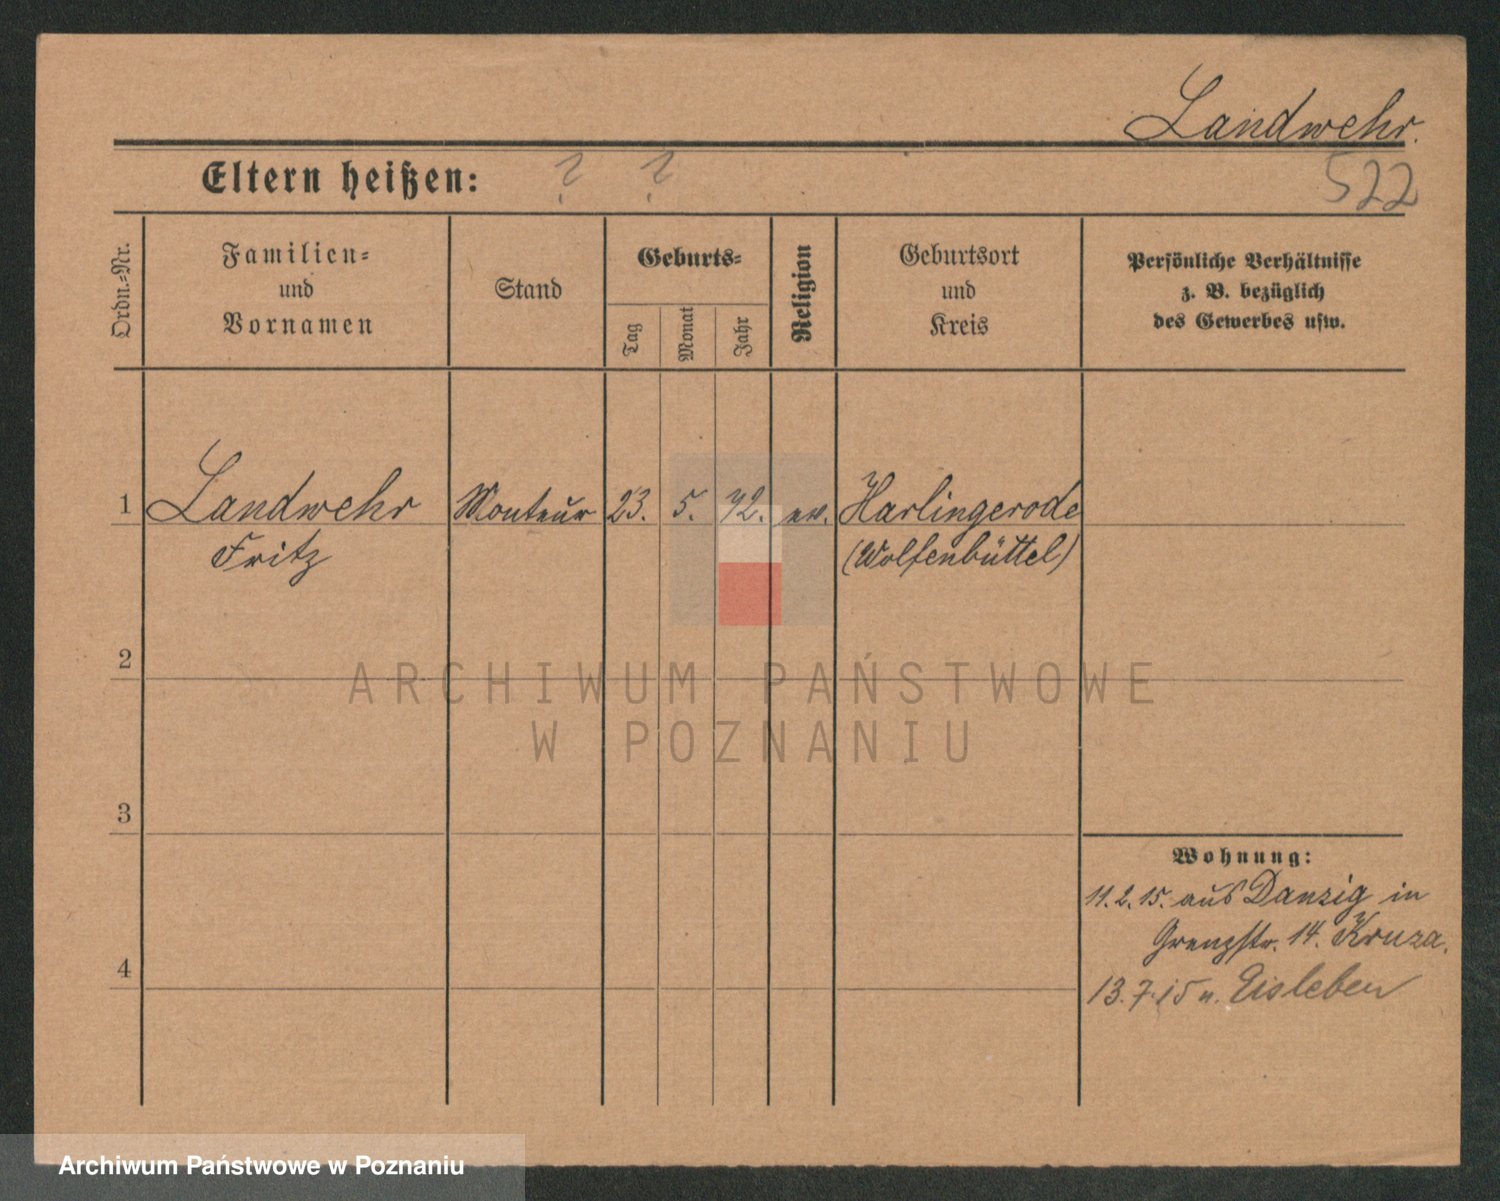 Landwehr.
Eltern heißen: ? ?
522
Ordn.=Nr.
Familien=
und
Vornamen
Stand
Geburts=
Tag
Monat
Jahr
Religion
Geburtsort
und
Kreis
Persönliche Verhältnisse
z. B. bezüglich
des Gewerbes usw.
1 Landwehr Monteur 23. 5. 72. ev. Harlingerode
Fritz (Wolfenbüttel)
2
ARCHIWUM PAŃSTWOWE
W POZNANIU
3
Wohnung:
11.2.15. aus Danzig in
Grenzstr. 14. Kruza.
4
13.7.15 n. Eisleben
Archiwum Państwowe w Poznaniu